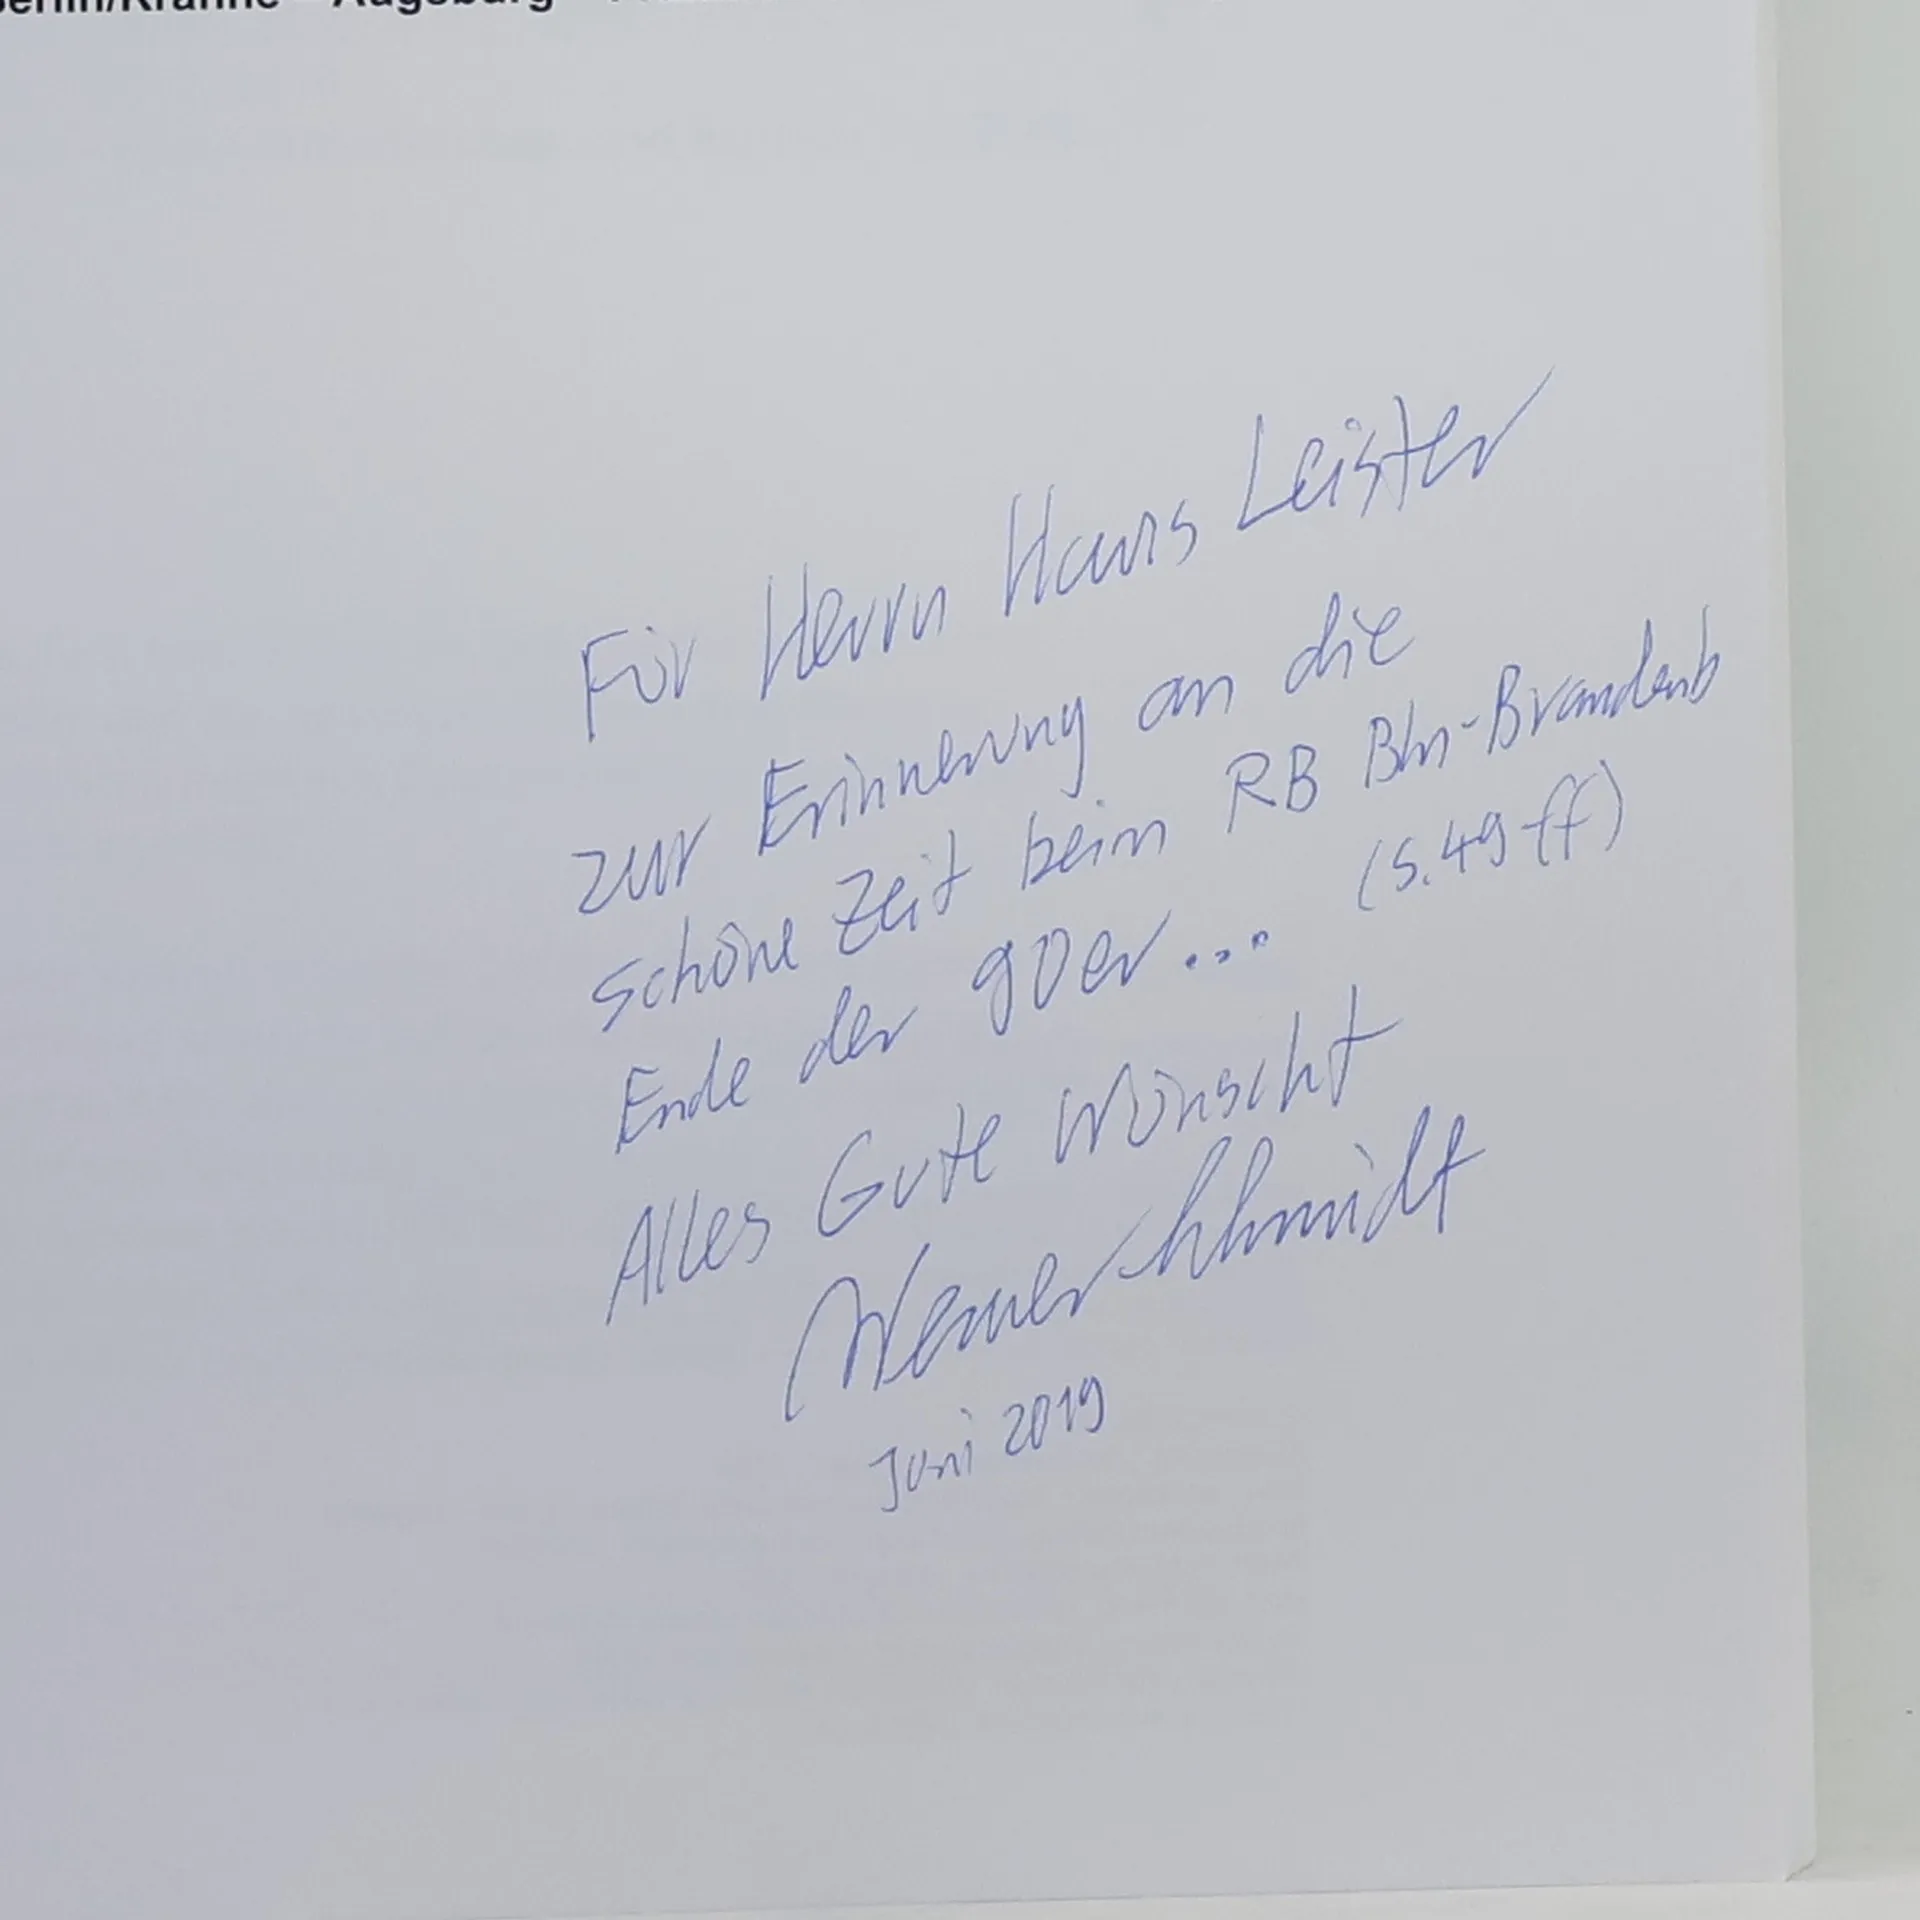 Berlin/Krahne – Augsburg –
Für Herrn Hans Leister
zur Erinnerung an die
schöne Zeit beim RB Bln-Brandenb
Ende der 90er... (S.49ff)
Alles Gute wünscht
Werner Schmidt
Juni 2019